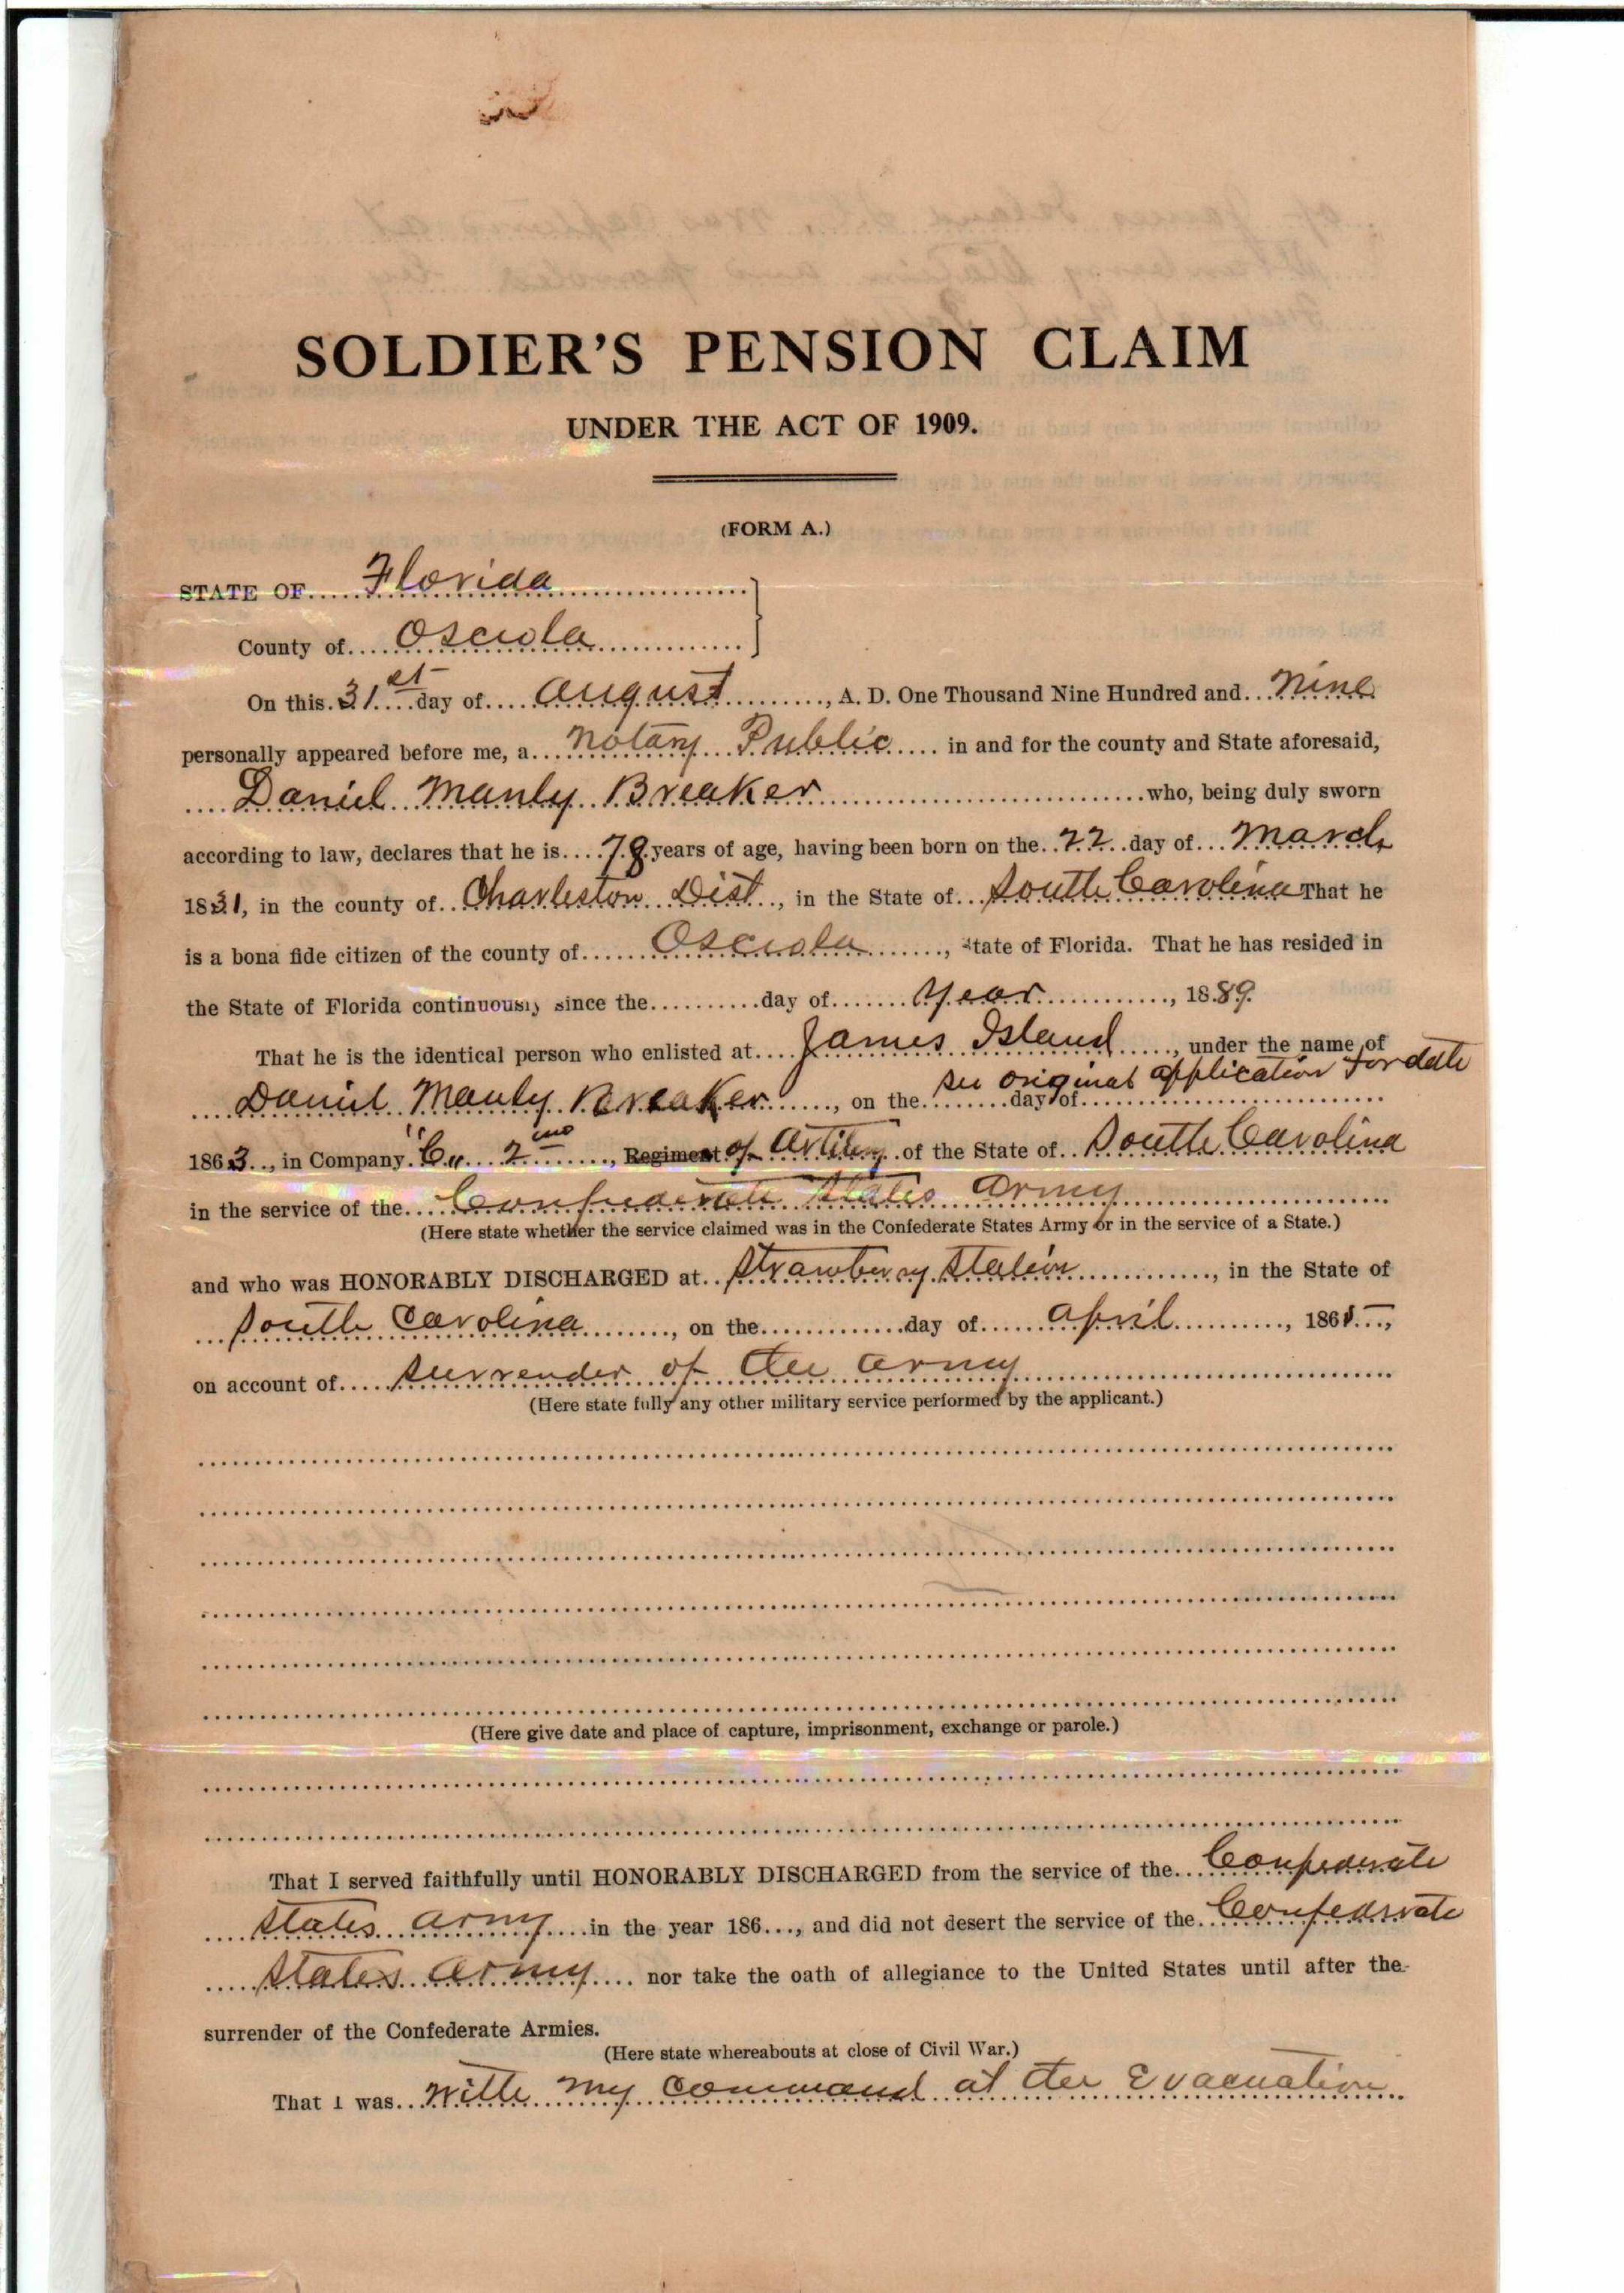 SOLDIER'S PENSION CLAIM
UNDER THE ACT OF 1909.
(FORM A.)
STATE OF Florida
County of Osceola
On this 31st day of August, A. D. One Thousand Nine Hundred and Nine
personally appeared before me, a Notary Public in and for the county and State aforesaid,
Daniel Manly Breaker who, being duly sworn
according to law, declares that he is 78 years of age, having been born on the 22 day of March
1831, in the county of Charleston Dist, in the State of South Carolina That he
is a bona fide citizen of the county of Osceola, State of Florida. That he has resided in
the State of Florida continuously since the day of Year, 1889.
That he is the identical person who enlisted at James Island, under the name of
Daniel Manly Breaker, on the day of see original application for date
1863, in Company "C" 2nd, Regiment of Artilery of the State of South Carolina
in the service of the Confederate States Army
(Here state whether the service claimed was in the Confederate States Army or in the service of a State.)
and who was HONORABLY DISCHARGED at Strawberry Station, in the State of
South Carolina, on the day of April, 1865,
on account of surrender of the army
(Here state fully any other military service performed by the applicant.)
(Here give date and place of capture, imprisonment, exchange or parole.)
That I served faithfully until HONORABLY DISCHARGED from the service of the Confederate
States Army in the year 186, and did not desert the service of the Confederate
States Army nor take the oath of allegiance to the United States until after the
surrender of the Confederate Armies.
(Here state whereabouts at close of Civil War.)
That I was With my command at the Evacuation